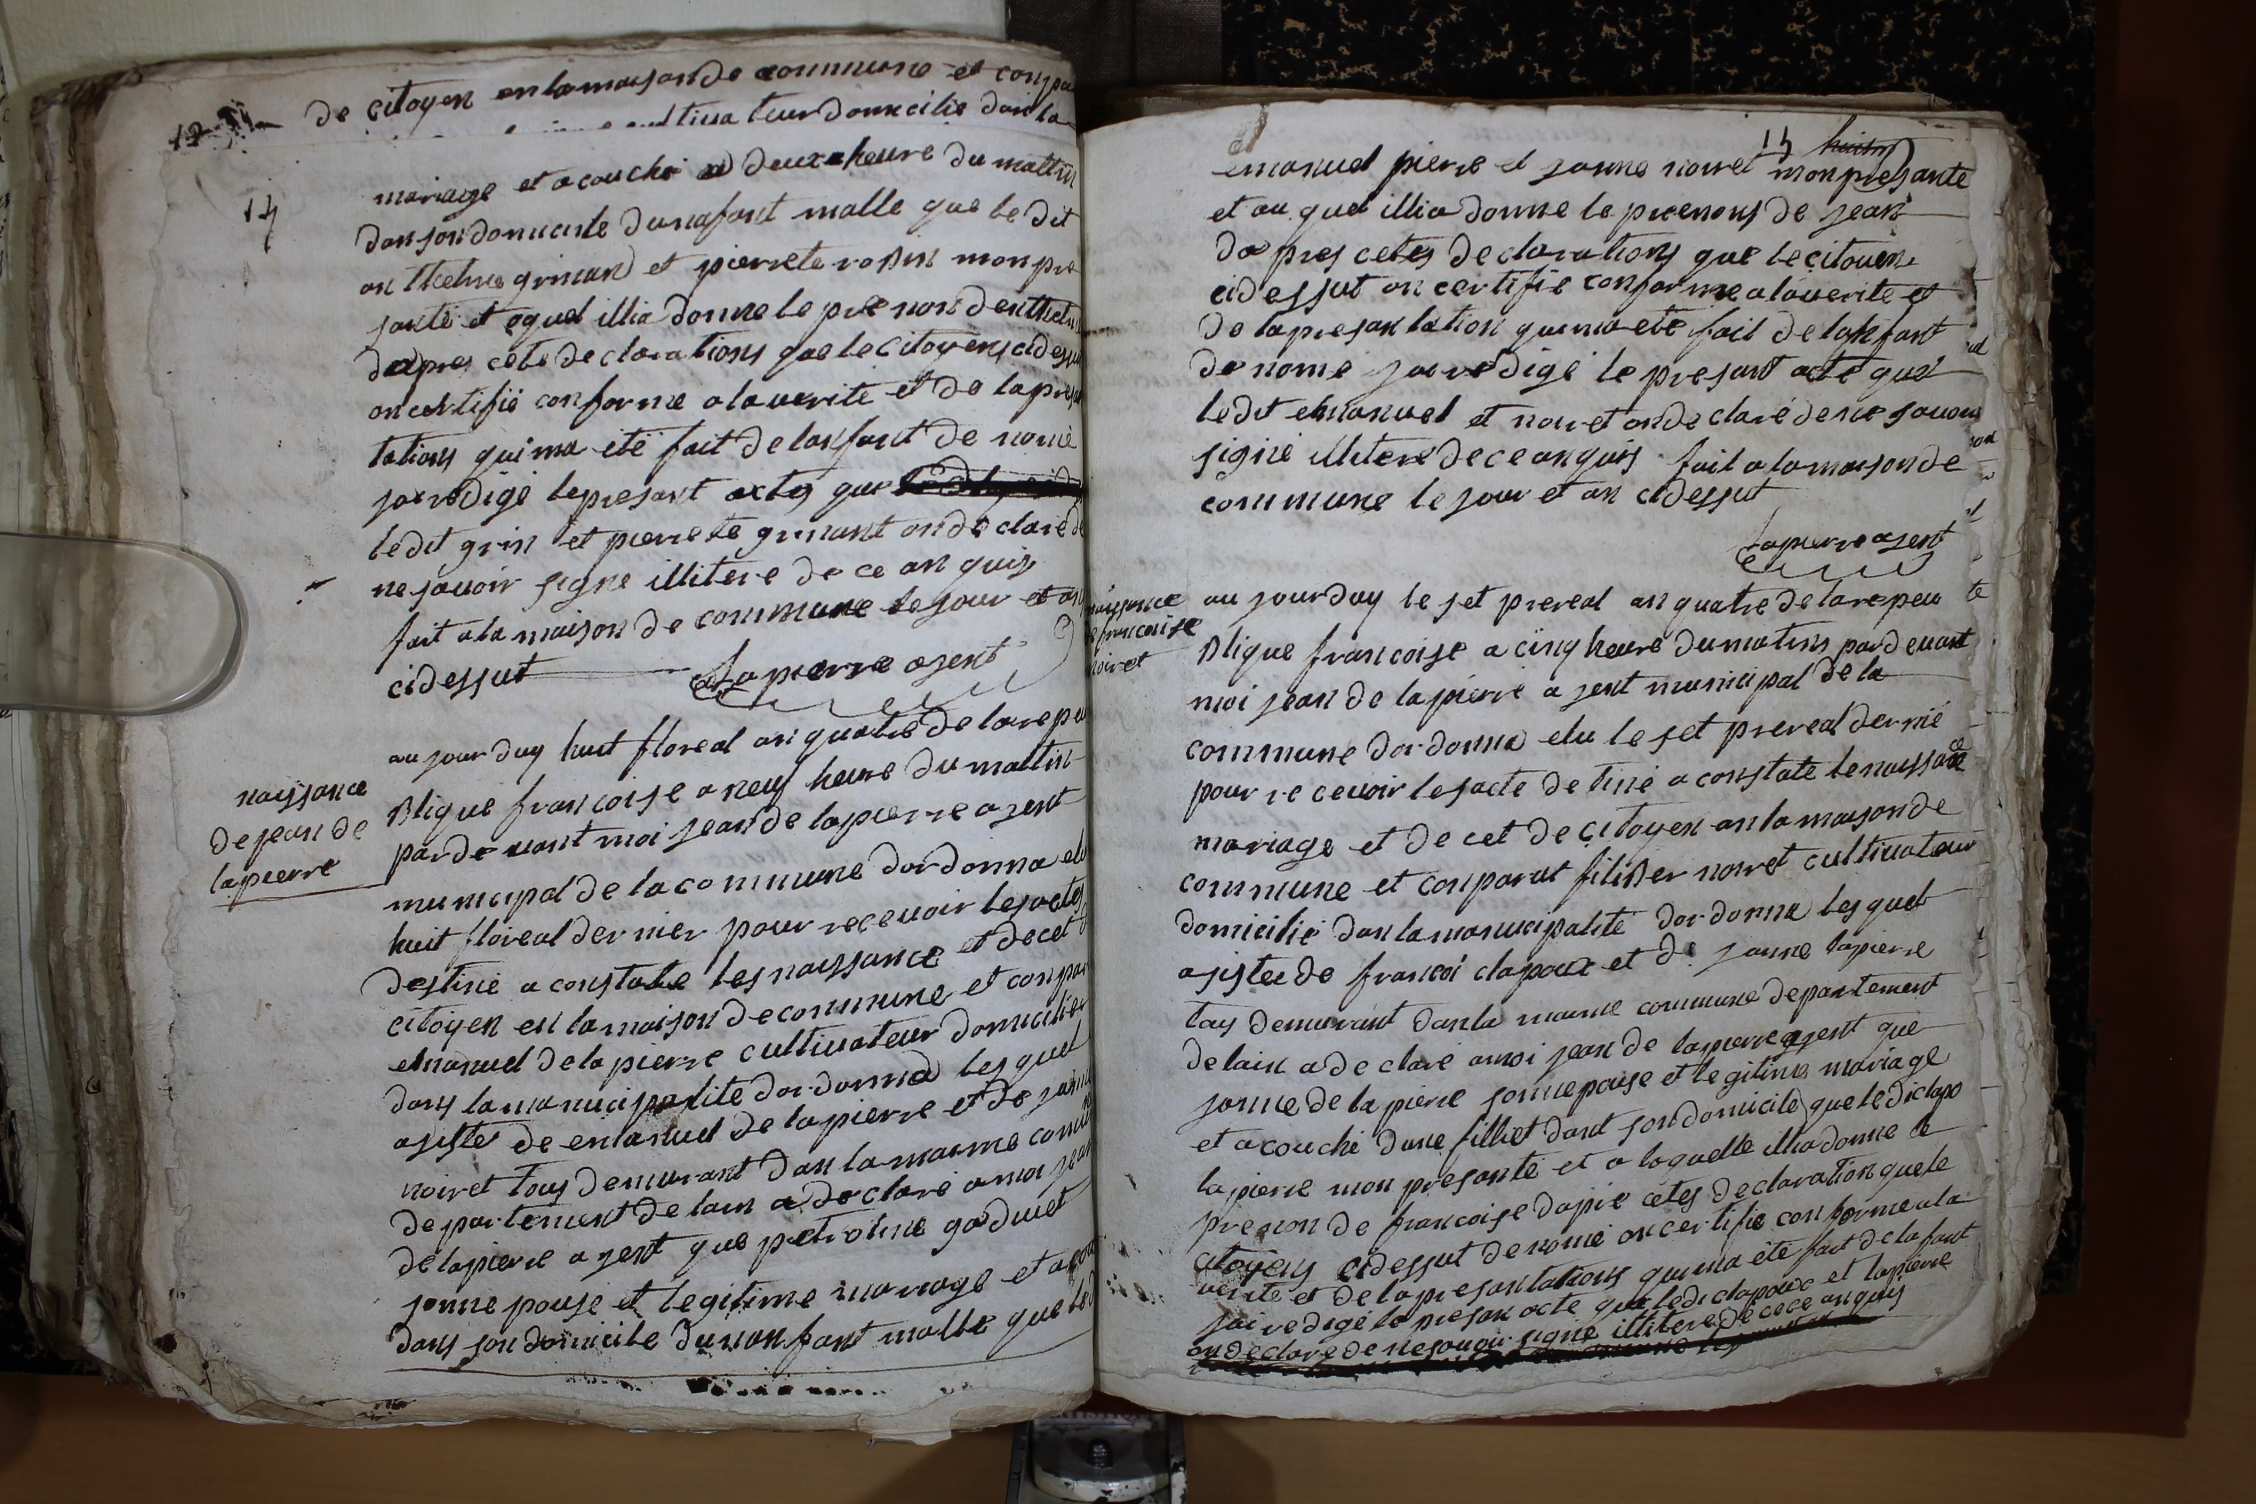 12
de citoyen en lamaison de commune et conpa
cultiua teur domicilie dan la
14
mariage et acouché a deux heure du mattin
dan son domicile dunafant malle que le dit
an thelme griman et pierrete robin mon pre
santé et equel illia donne le pre non denthelme
dapres cete declarations que le citoyens cidessu
oncertifié conforme alauerite et de lapresan
tations quima été fait de lanfant de nomé
jairedigé lepresant actes que
ledit grin et pierrete grimant ondé claré de
ne sauoir signe illitere de ce anquis
fait ala maison de commune le jour et an
cidessut
Lapierre agent
naissance
de jean de
lapierre
au jourduy huit floreal an quatre de larepu
blique francoise a neuf heure du mattin
pardeuant moi jean de lapierre agent
municipal de la commune dordonna elu
huit floreal dernier pour receuoir lesactes
destiné a constate les naissance et decet
citoyen en lamaison de commune et conpar
emanuel de la pierre cultiuateur domicilier
dans lamanucipalite dordonna les quel
asiste de emanuel de lapierre et de janne
noiret tous demurant dan la maime comune
departement de lain a de claré a moi jean
de lapierre agent que petroline goduet
sonnepouse et legitime mariage et acou
dans son domicile dunanfant malle que led
14 huitn
emanuel pierre et janne noiret monpresante
et au quel illia donne le prenons de jean
da pres cetes declarations que lecitouen
cidessut on certifie conforme alauerite et
de lapresantation quima eté fait de lanfant
de nomé jairedigé le presant acte que
ledit emanuel et noiret ondeclaré dene sauoir
signé illitere dece anquis fait alamaisonde
commune le jour et an cidessut
Lapierre agent
naissance
de francoise
noiret
au jourduy le set prereal an quatre de larepeu
blique francoise a cinq heure dumatins pardeuant
moi jean de lapierre agent municipal de la
commune dordonna elu le set prereal dernié
pour receuoir lesacte de tiné a constaté lenaissance
mariage et de cet de citoyen anlamaisonde
commune et conparut filiber noiret cultiuateur
domicilié dan lamanucipalité dordonna lesquel
asiste de francoi clapoux et de janne lapierre
tous demurant danla maime commune departement
delain a de claré amoi jean de lapierre agent que
janne de lapierre sonnepouse et legitime mariage
et acouché dune filliet dant sondomicile que ledi clapo
lapierre mon presanté et a laquelle illiadonne le
prenon de francoise dapre cetes declaration quele
citoyens cidessut denomé oncertifie conformeala
verité et de lapresantations quima été fait de lafant
jairedigé le presan acte que ledi clapoux et lapierre
ondeclare de nesauoir signé illitere de cece anquis